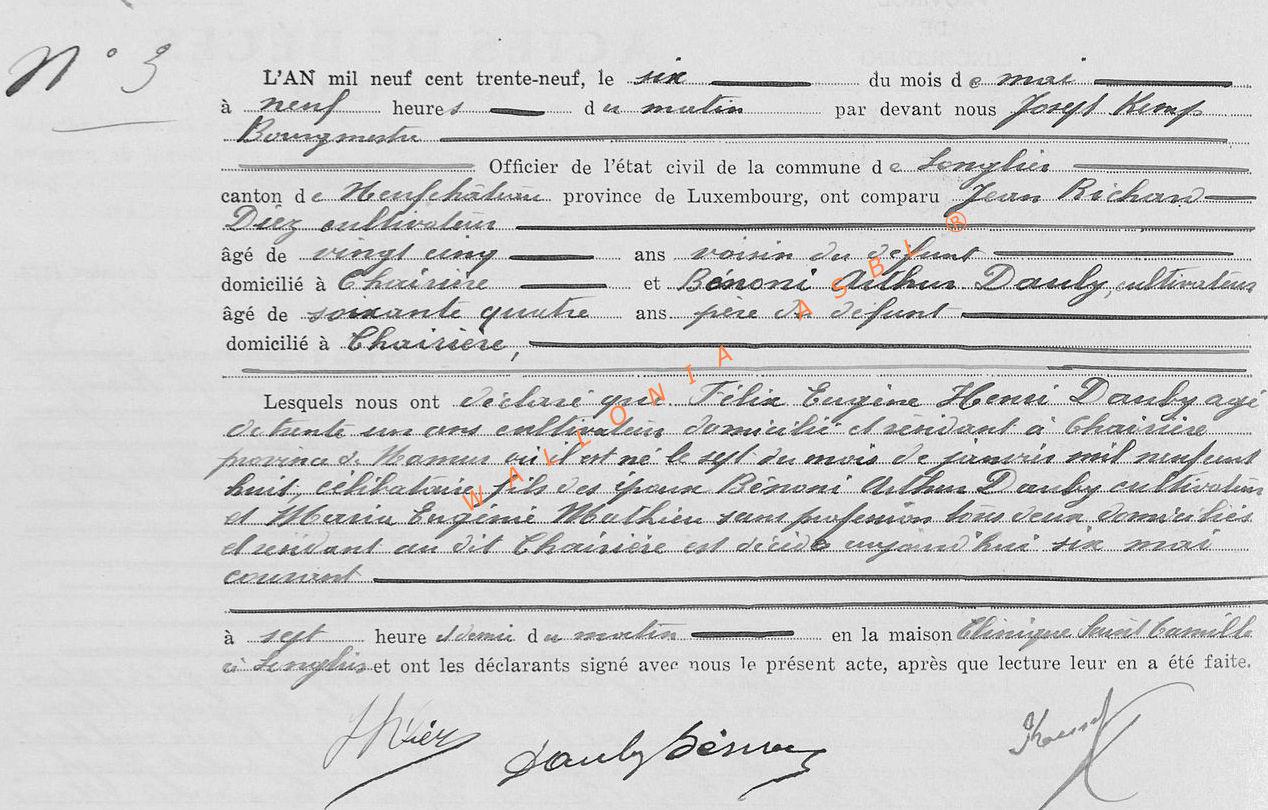 N° 3
L'AN mil neuf cent trente-neuf, le six du mois de mai
à neuf heures du matin par devant nous Joseph Kemp
Bourgmestre
Officier de l'état civil de la commune de Longlier
canton de Neufchâteau province de Luxembourg, ont comparu Jean Richard
Diez cultivateur
âgé de vingt cinq ans voisin du défunt
domicilié à Chairière et Bénoni Arthur Dauby, cultivateur
âgé de soixante quatre ans père du défunt
domicilié à Chairière,
Lesquels nous ont déclaré que Félix Eugène Henri Dauby agé
de trente un ans cultivateur domicilié et résidant à Chairière
province de Namur où il est né le sept du mois de janvier mil neuf cent
huit, célibataire, fils des époux Bénoni Arthur Dauby cultivateur
et Maria Eugénie Mathieu sans profession tous deux domiciliés
et résidant au dit Chairière est décédé aujourd'hui six mai
courant
à sept heure et demie du matin en la maison Clinique Saint Camille
à Longlier et ont les déclarants signé avec nous le présent acte, après que lecture leur en a été faite.
Dauby Bénoni
WALLONIA ASBL ®